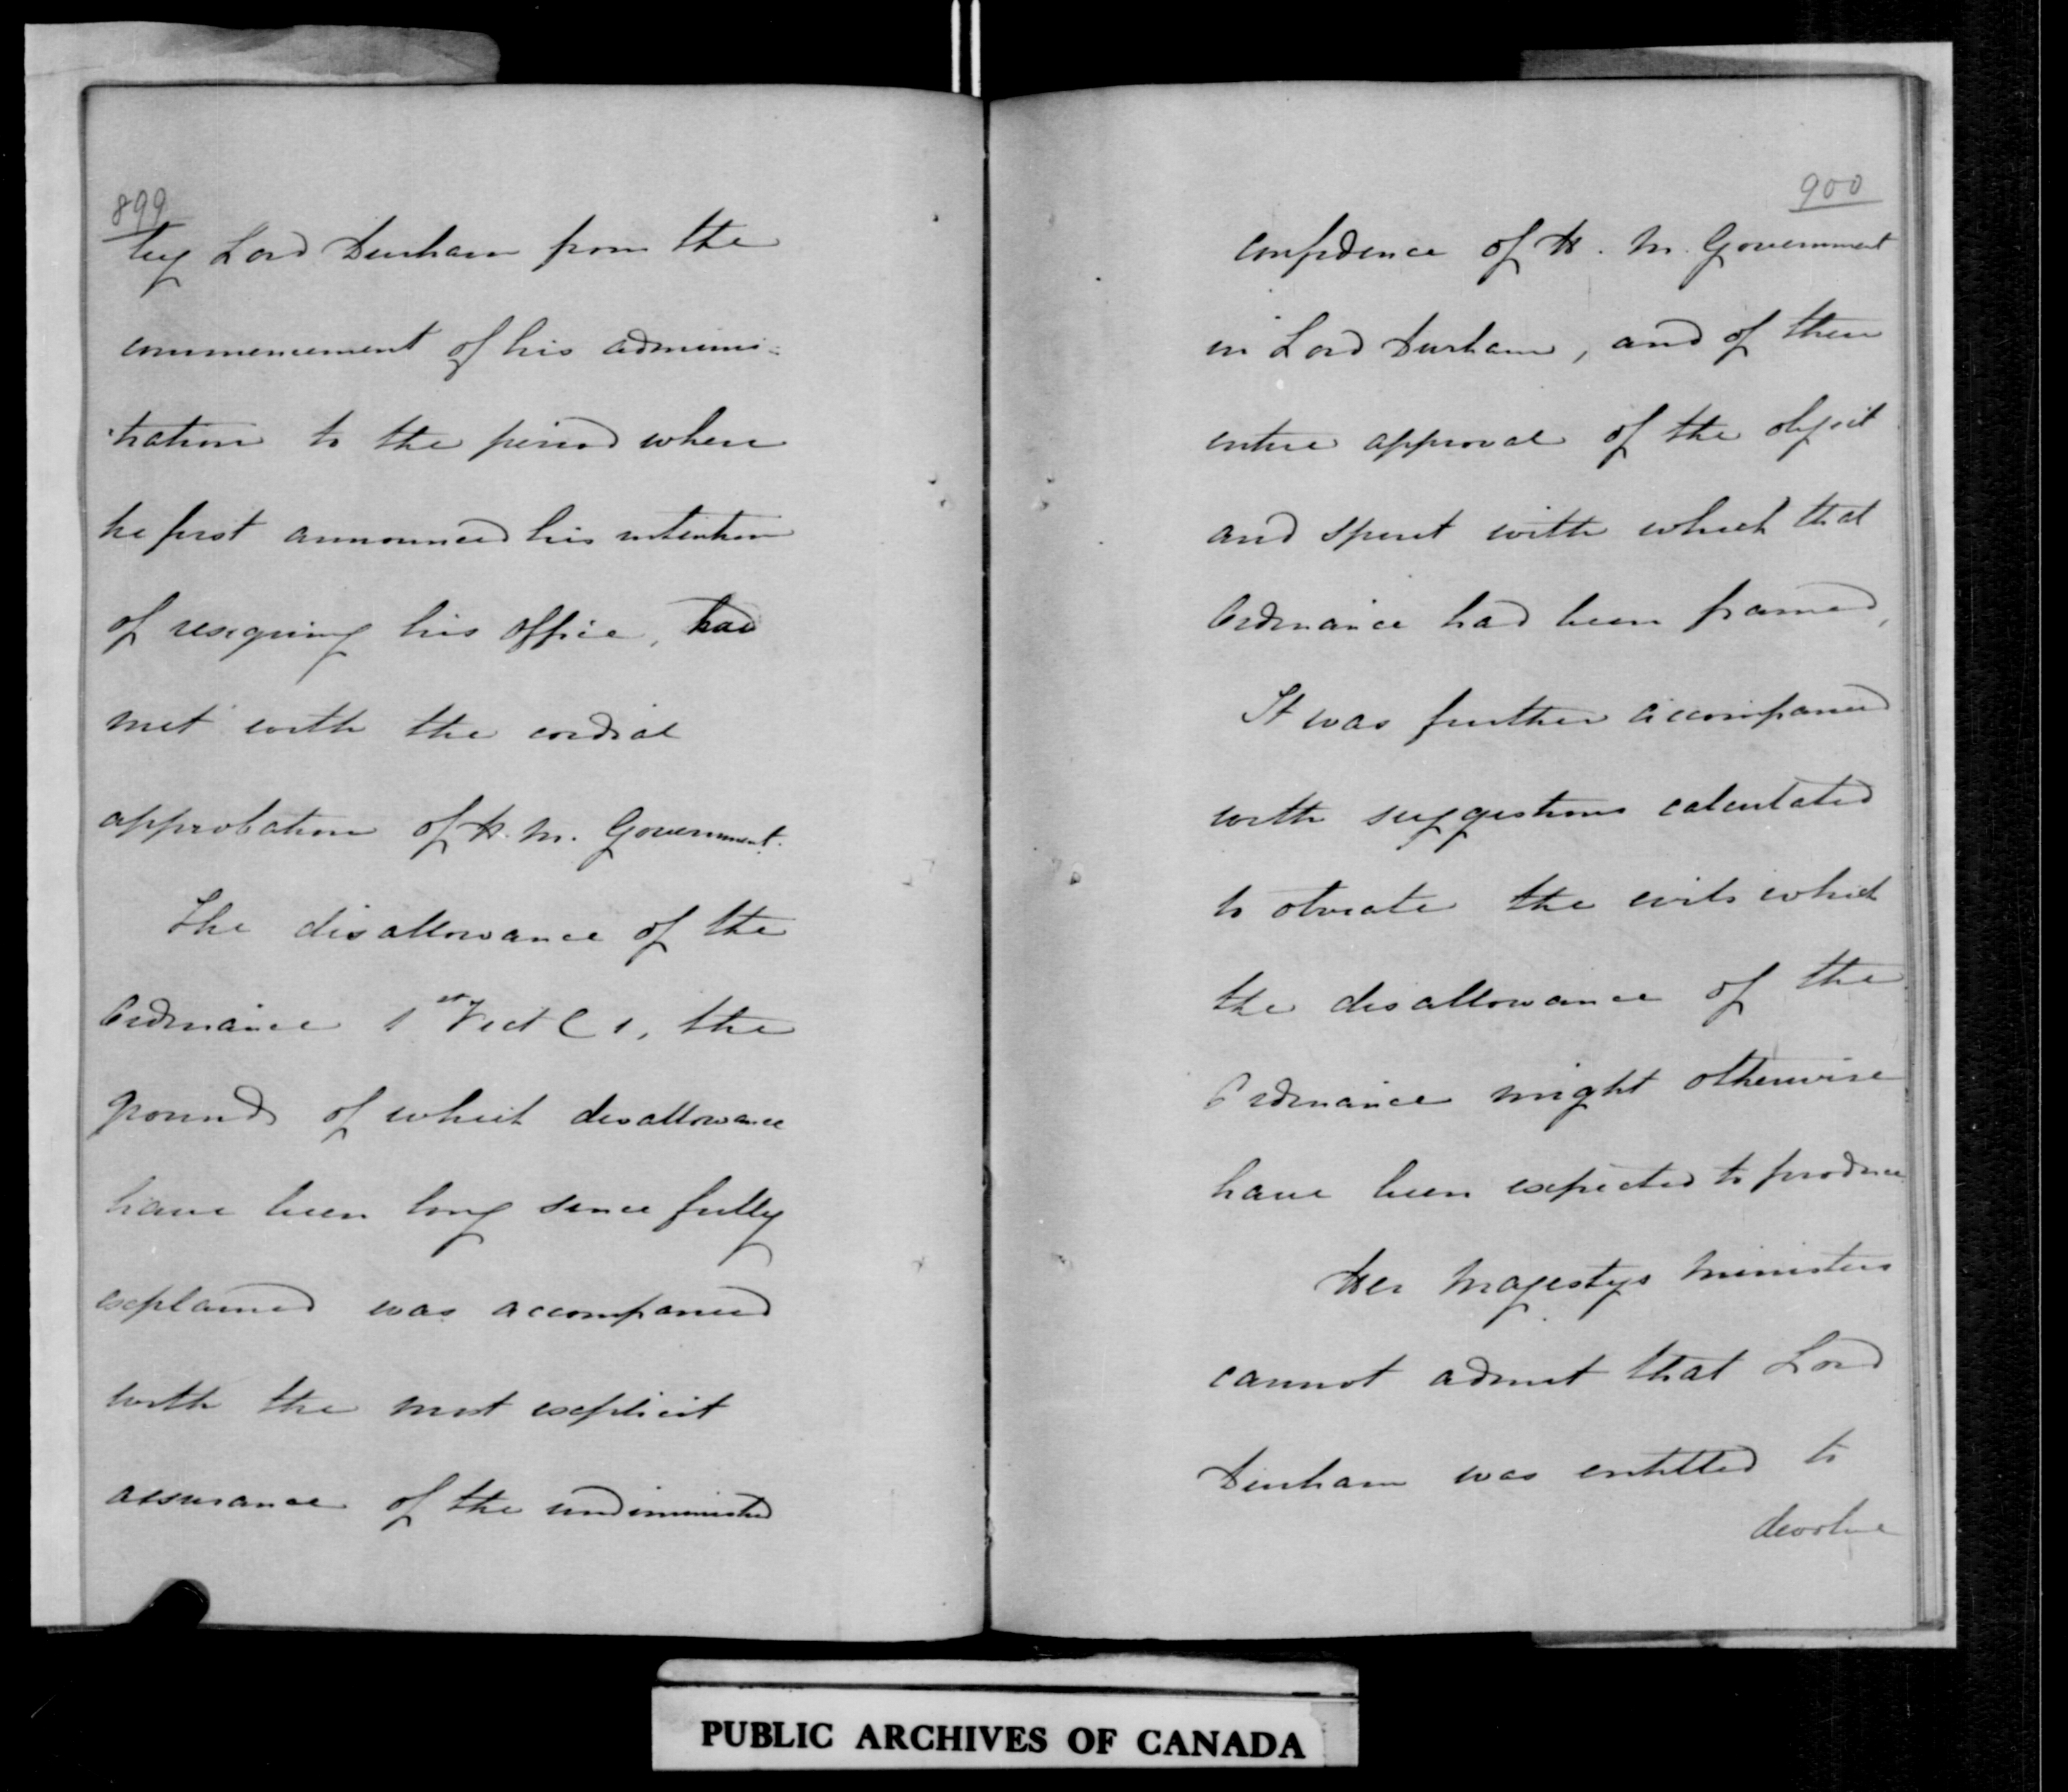 899
by Lord Durham from the
commencement of his adminis:
:tration to the period when
he first announced his intention
of resigning his office, had
met with the cordial
approbation of H. M. Government.
The disallowance of the
Ordinance 1st Vict C 1, the
grounds of which disallowance
have been long since fully
explained was accompanied
with the most explicit
assurance of the undiminished
900
confidence of H. M. Government
in Lord Durham, and of their
entire approval of the object
and spirit with which that
Ordinance had been framed,
It was further accompanied
with suggestions calculated
to obviate the evils which
the disallowance of the
Ordinance might otherwise
have been expected to produce
Her Majestys Ministers
cannot admit that Lord
Durham was entitled to
devolve
PUBLIC ARCHIVES OF CANADA